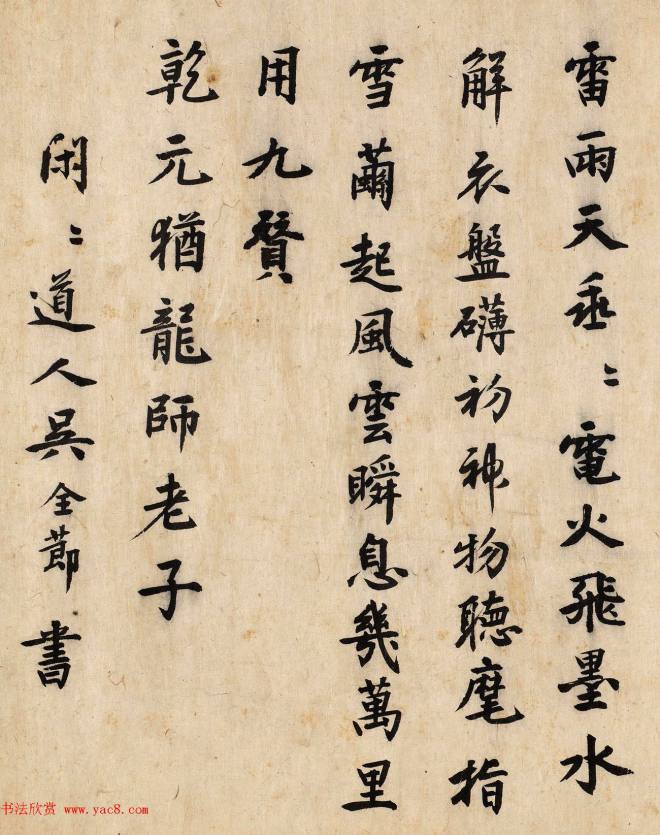 雷雨天垂〻電火飛墨水
解衣盤礴初神物聽麾指
雪繭起風雲瞬息幾萬里
用九賛
乾元猶龍師老子
閑〻道人吳全節書
书法欣赏 www.yac8.com